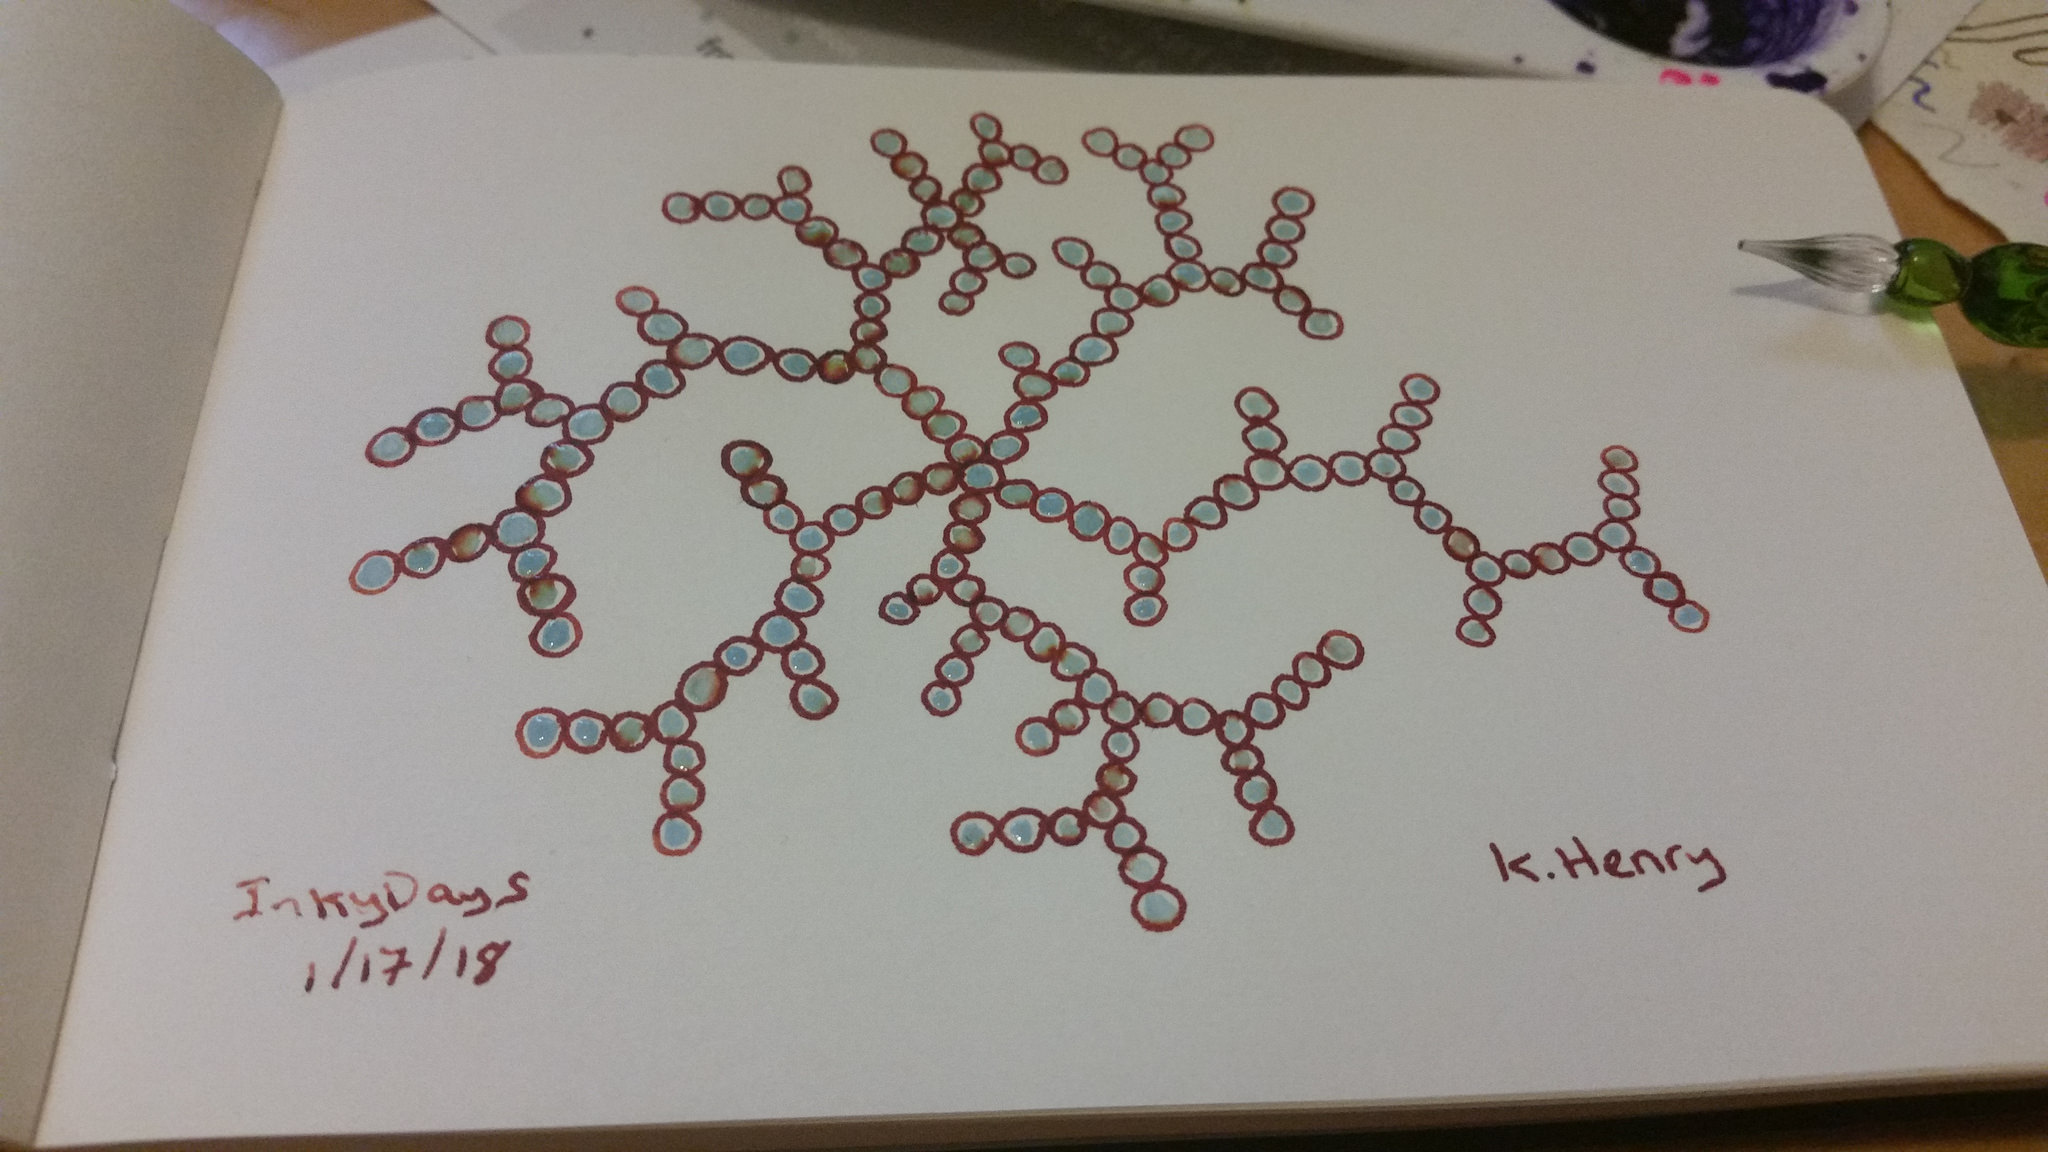 InkyDays
1/17/18
K.Henry